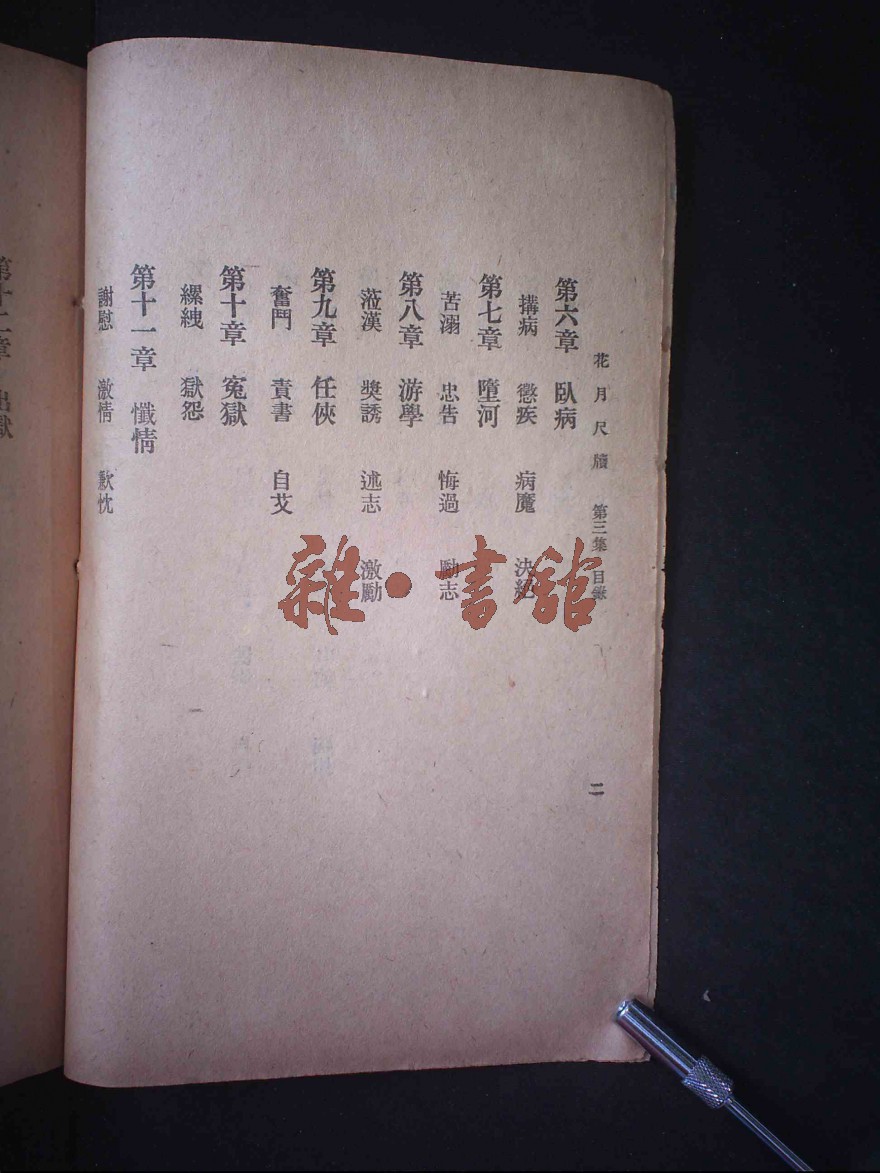 花月尺牘 第三集 目錄 二
第六章 臥病
搆病 懲疾 病魔 決絕
第七章 墮河
苦溺 忠告 悔過 勵志
第八章 游學
蒞漢 奬誘 述志 激勵
第九章 任俠
奮鬥 責書 自艾
第十章 寃獄
縲絏 獄怨
第十一章 懺情
謝慰 激情 歉忱
第十二章 出獄
雜·書館